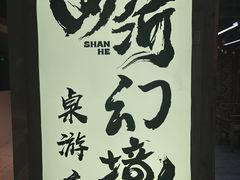 山河幻境
SHAN
HE
桌游